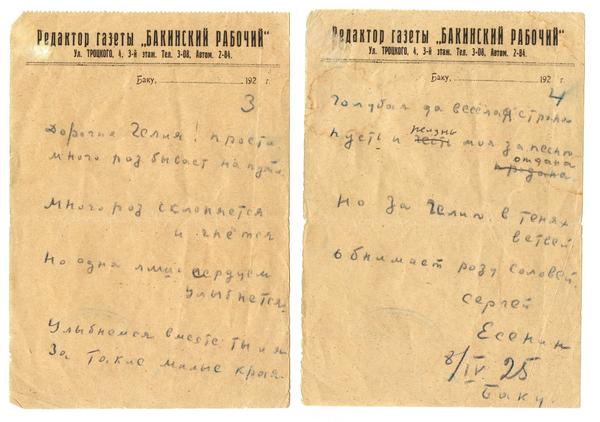 Редактор газеты „БАКИНСКИЙ РАБОЧИЙ“
Ул. ТРОЦКОГО, 4, 3-й этаж. Тел. 3-08, Автом. 2-84.
Баку, 192 г.
3
Дорогая Гелия! прости
много роз бывает на пути.
Много роз склоняется
и гнётся
Но одна лишь сердцем
улыбнется.
Улыбнемся вместе ты и я
За такие милые края.
Редактор газеты „БАКИНСКИЙ РАБОЧИЙ“
Ул. ТРОЦКОГО, 4, 3-й этаж. Тел. 3-08, Автом. 2-84.
Баку, 192 г.
4
Голубая да весёлая страна
жизнь
пусть и честь моя за песню
отдана
продана
Но за Гелию в тенях
ветвей
обнимает розу соловей.
Сергей
Есенин
8/IV 25
Баку.